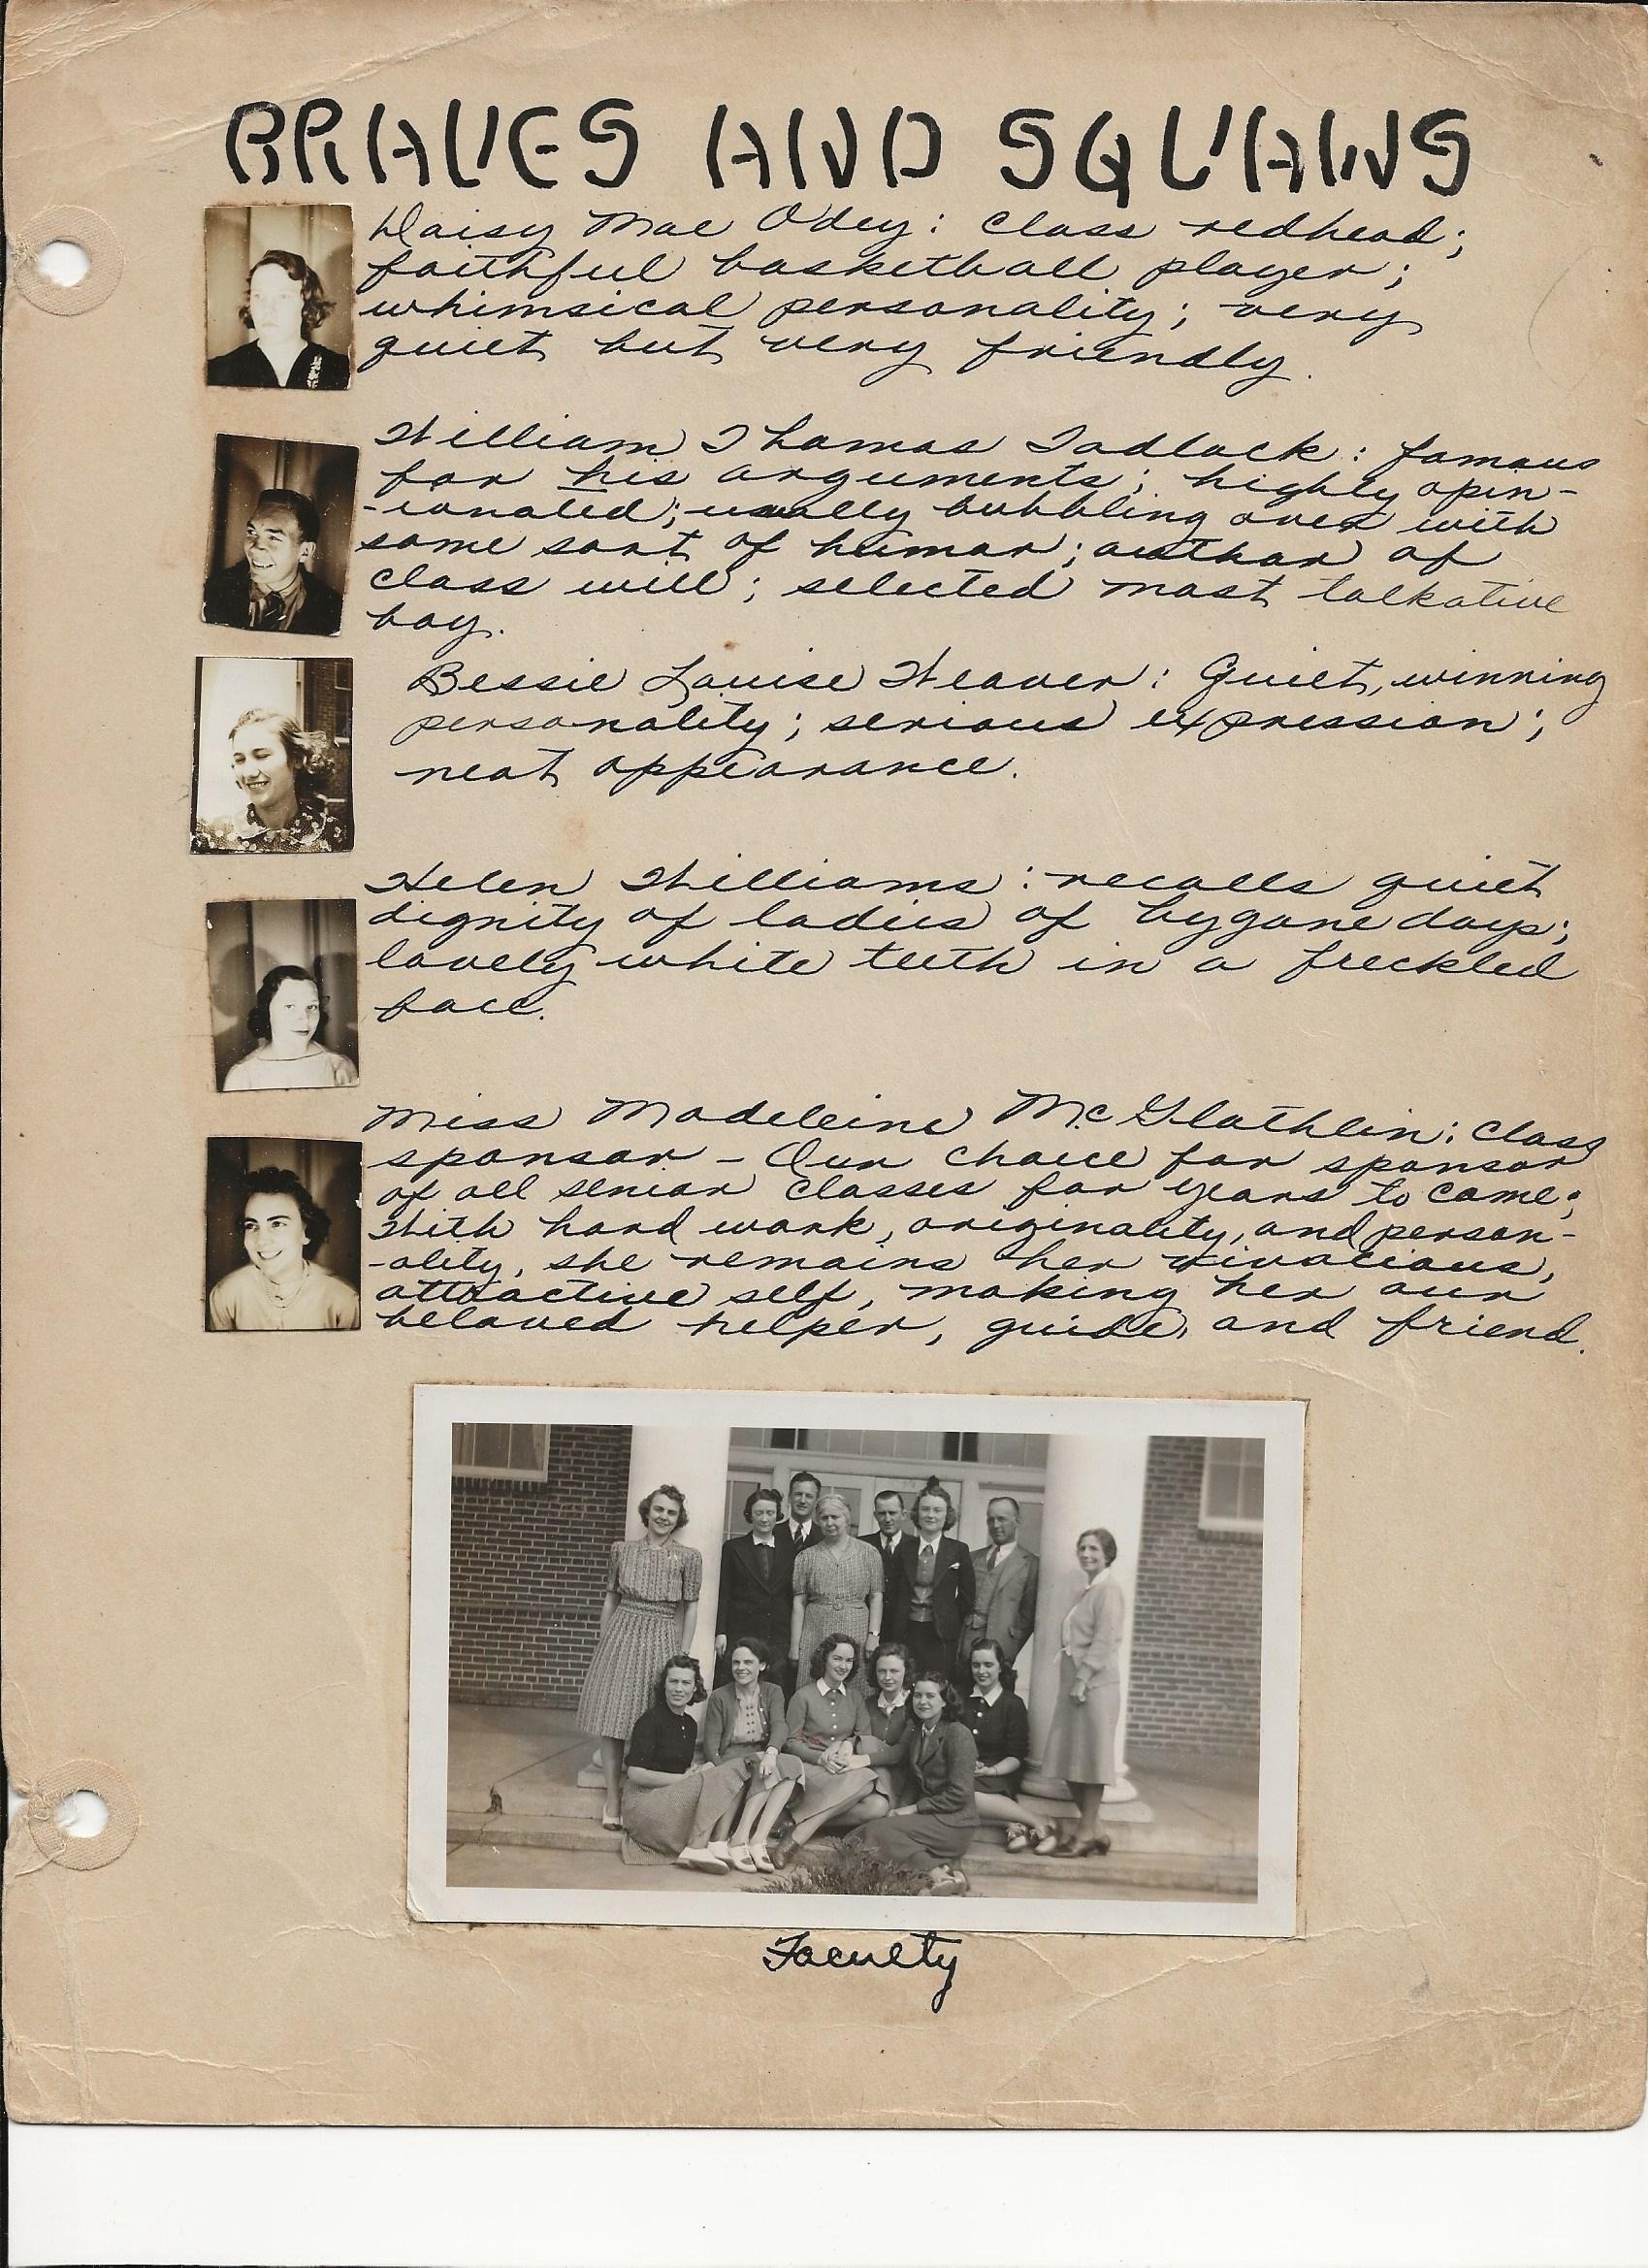 BRAVES AND SQUAWS
Daisy Mae Odey: Class redhead;
faithful basketball player;
whimsical personality; very
quiet but very friendly.
William Thomas Tadlock: famous
for his arguments; highly opin-
-ionated; usually bubbling over with
some sort of humor; author of
class will; selected most talkative
boy.
Bessie Louise Weaver: Quiet, winning
personality; serious expression;
neat appearance.
Helen Williams: recalls quiet
dignity of ladies of bygone days;
lovely white teeth in a freckled
face.
Miss Madeleine McGlathlin: Class
sponsor - Our choice for sponsor
of all senior classes for years to come;
With hard work, originality, and person-
-ality, she remains her vivacious,
attractive self, making her our
beloved helper, guide, and friend.
Faculty